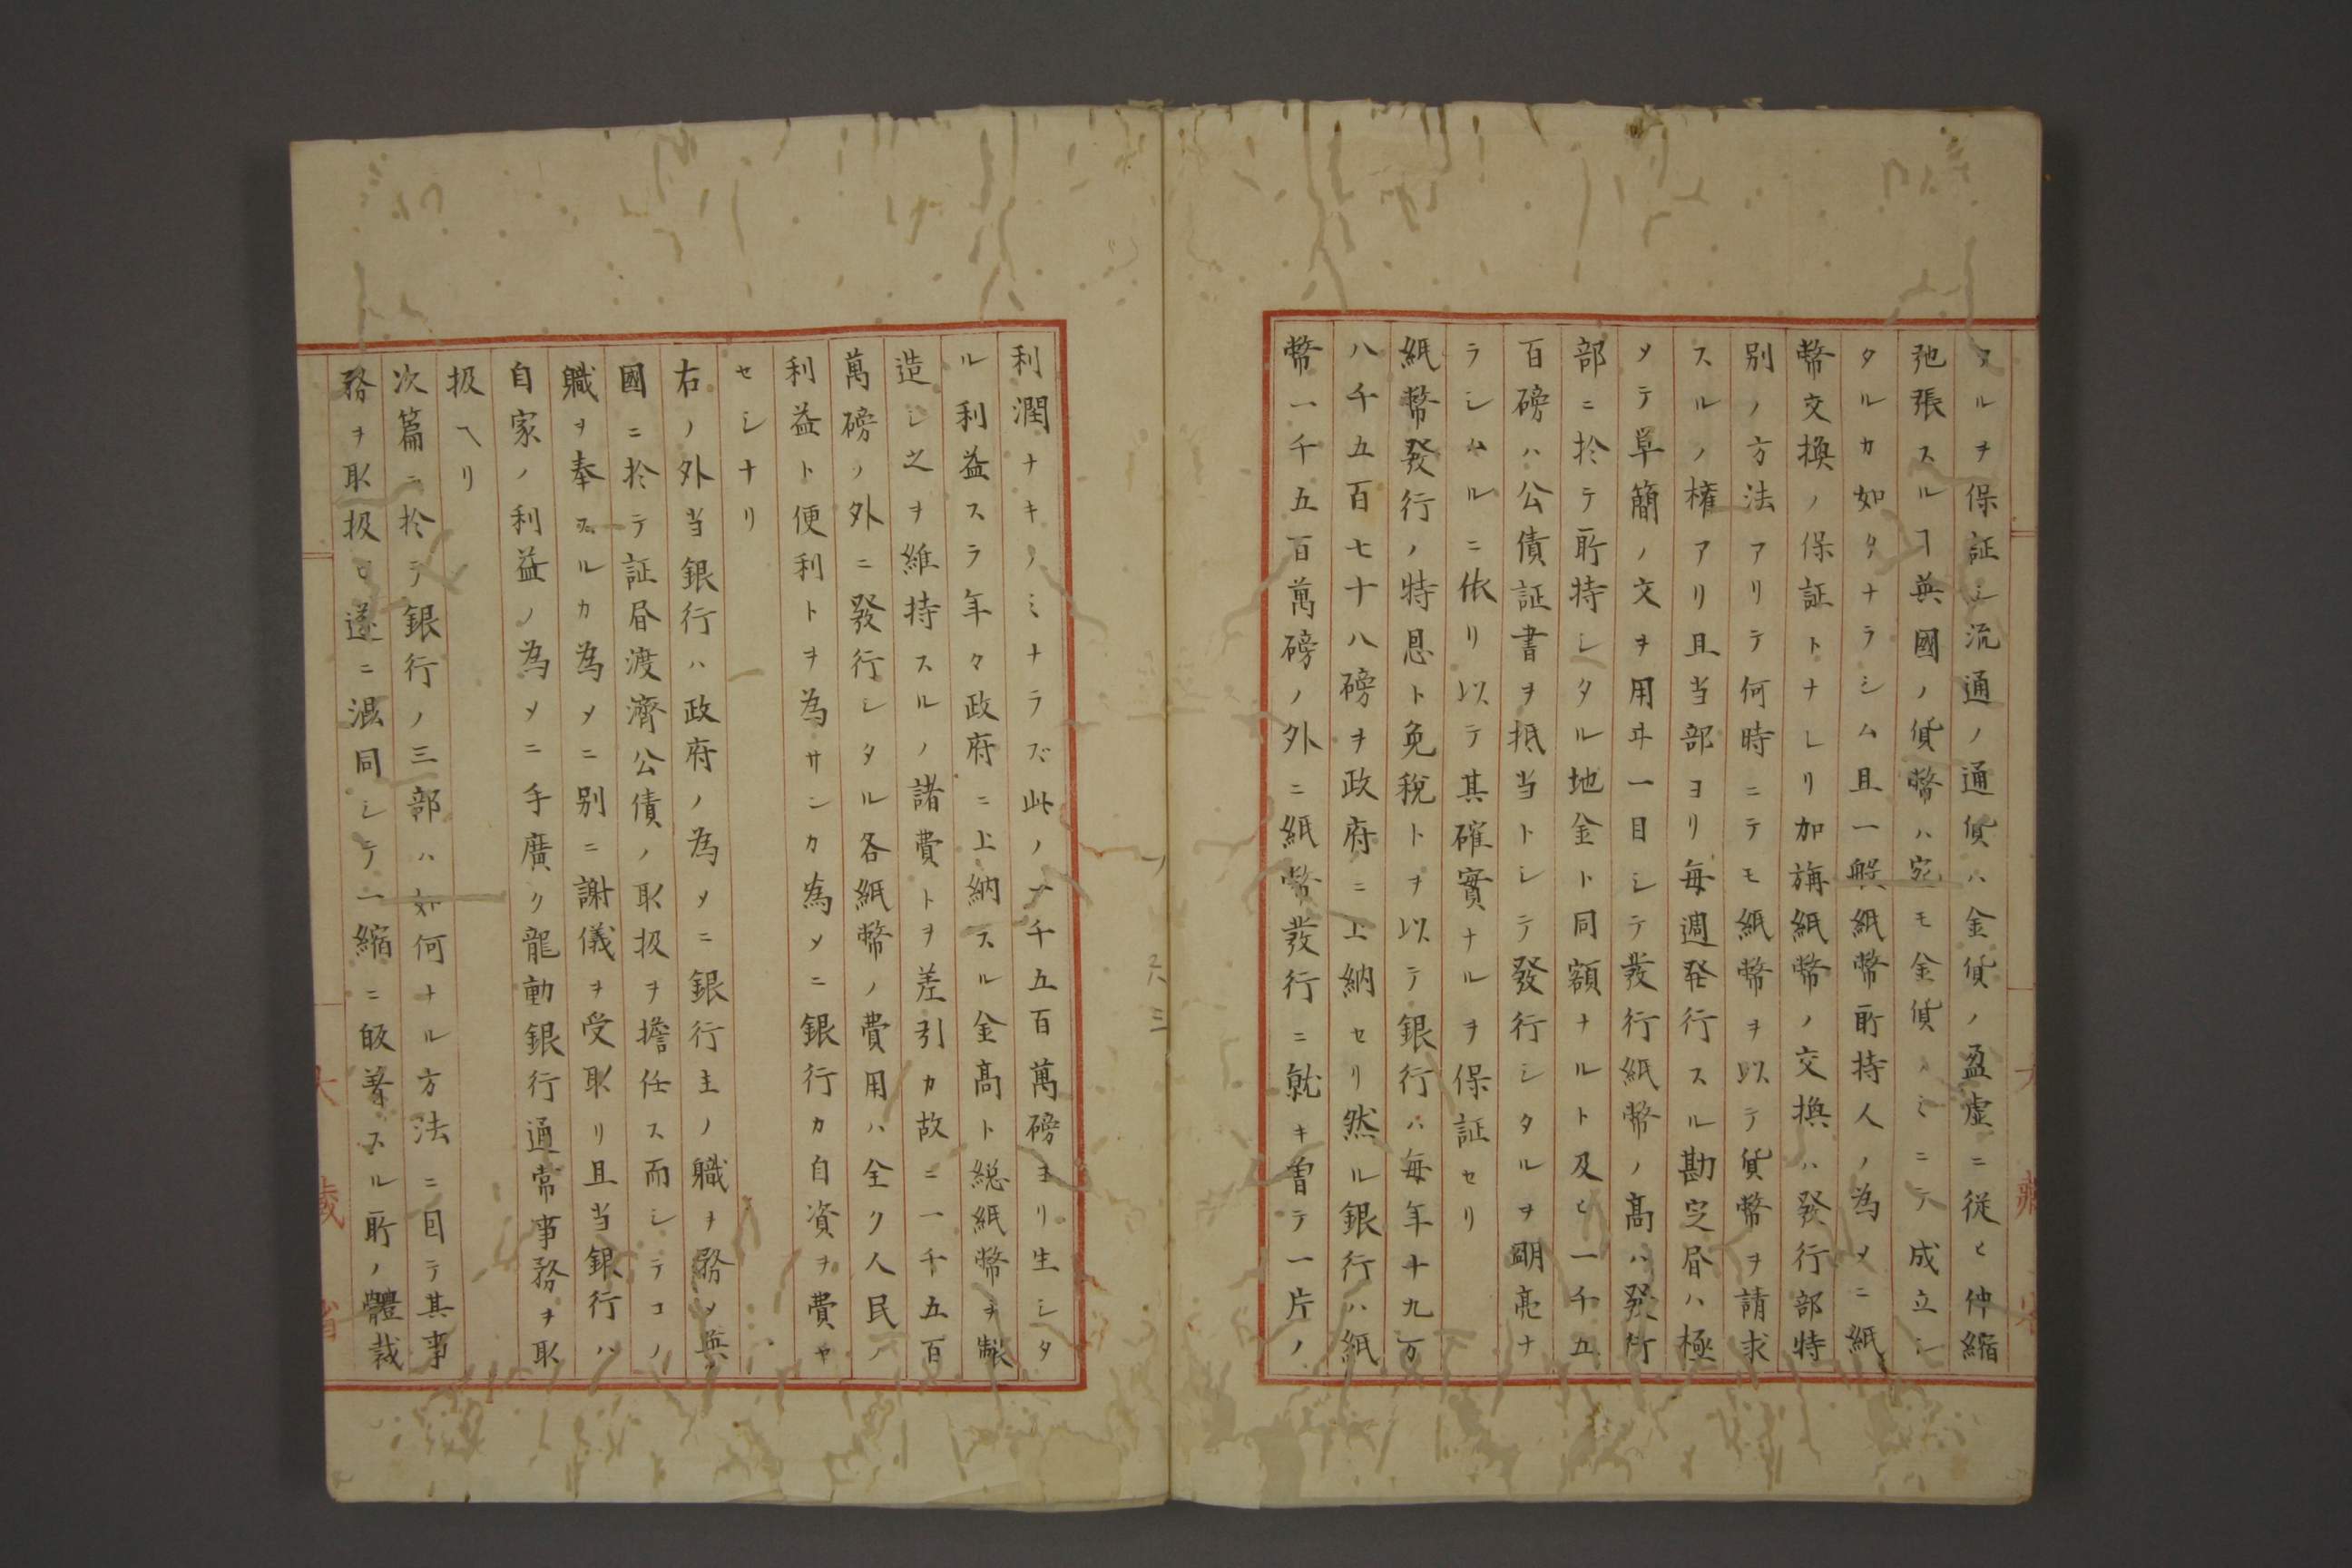 ヌルヲ保証シ流通ノ通貨ハ金貨ノ盈虚ニ従ヒ伸縮
弛張スルヿ英國ノ貨幣ハ宛モ金貨ノミニテ成立シ
タルカ如クナラシム且一般紙幣所持人ノ為メニ紙
幣交換ノ保証トナレリ加旃紙幣ノ交換ハ發行部特
別ノ方法アリテ何時ニテモ紙幣ヲ以テ貨幣ヲ請求
スルノ権アリ且当部ヨリ毎週発行スル勘定書ハ極
メテ単簡ノ文ヲ用ヰ一目シテ發行紙幣ノ髙ハ發行
部ニ於テ所持シタル地金ト同額ナルト及ヒ一千五
百磅ハ公債証書ヲ抵当トシテ發行シタルヲ明亮ナ
ラシムルニ依リ以テ其確實ナルヲ保証セリ
紙幣發行ノ特恩ト免稅トヲ以テ銀行ハ毎年十九万
八千五百七十八磅ヲ政府ニ上納セリ然ル銀行ハ紙
幣一千五百萬磅ノ外ニ紙幣發行ニ就キ曽テ一片ノ
利潤ナキノミナラズ此ノ一千五百萬磅ヨリ生シタ
ル利益スラ年々政府ニ上納スル金髙ト総紙幣ヲ製
造シ之ヲ維持スルノ諸費トヲ差引カ故ニ一千五百
萬磅ノ外ニ發行シタル各紙幣ノ費用ハ全ク人民ノ
利益ト便利トヲ為サンカ為メニ銀行カ自資ヲ費ヤ
セシナリ
右ノ外当銀行ハ政府ノ為メニ銀行主ノ職ヲ務メ英
國ニ於テ証書渡濟公債ノ取扱ヲ擔任ス而シテコノ
職ヲ奉スルカ為メニ別ニ謝儀ヲ受取リ且当銀行ハ
自家ノ利益ノ為メニ手廣ク龍動銀行通常事務ヲ取
扱ヘリ
次篇ニ於テ銀行ノ三部ハ如何ナル方法ニ因テ其事
務ヲ取扱ヒ遂ニ混同シテ一縮ニ皈着スル所ノ體裁
大藏省